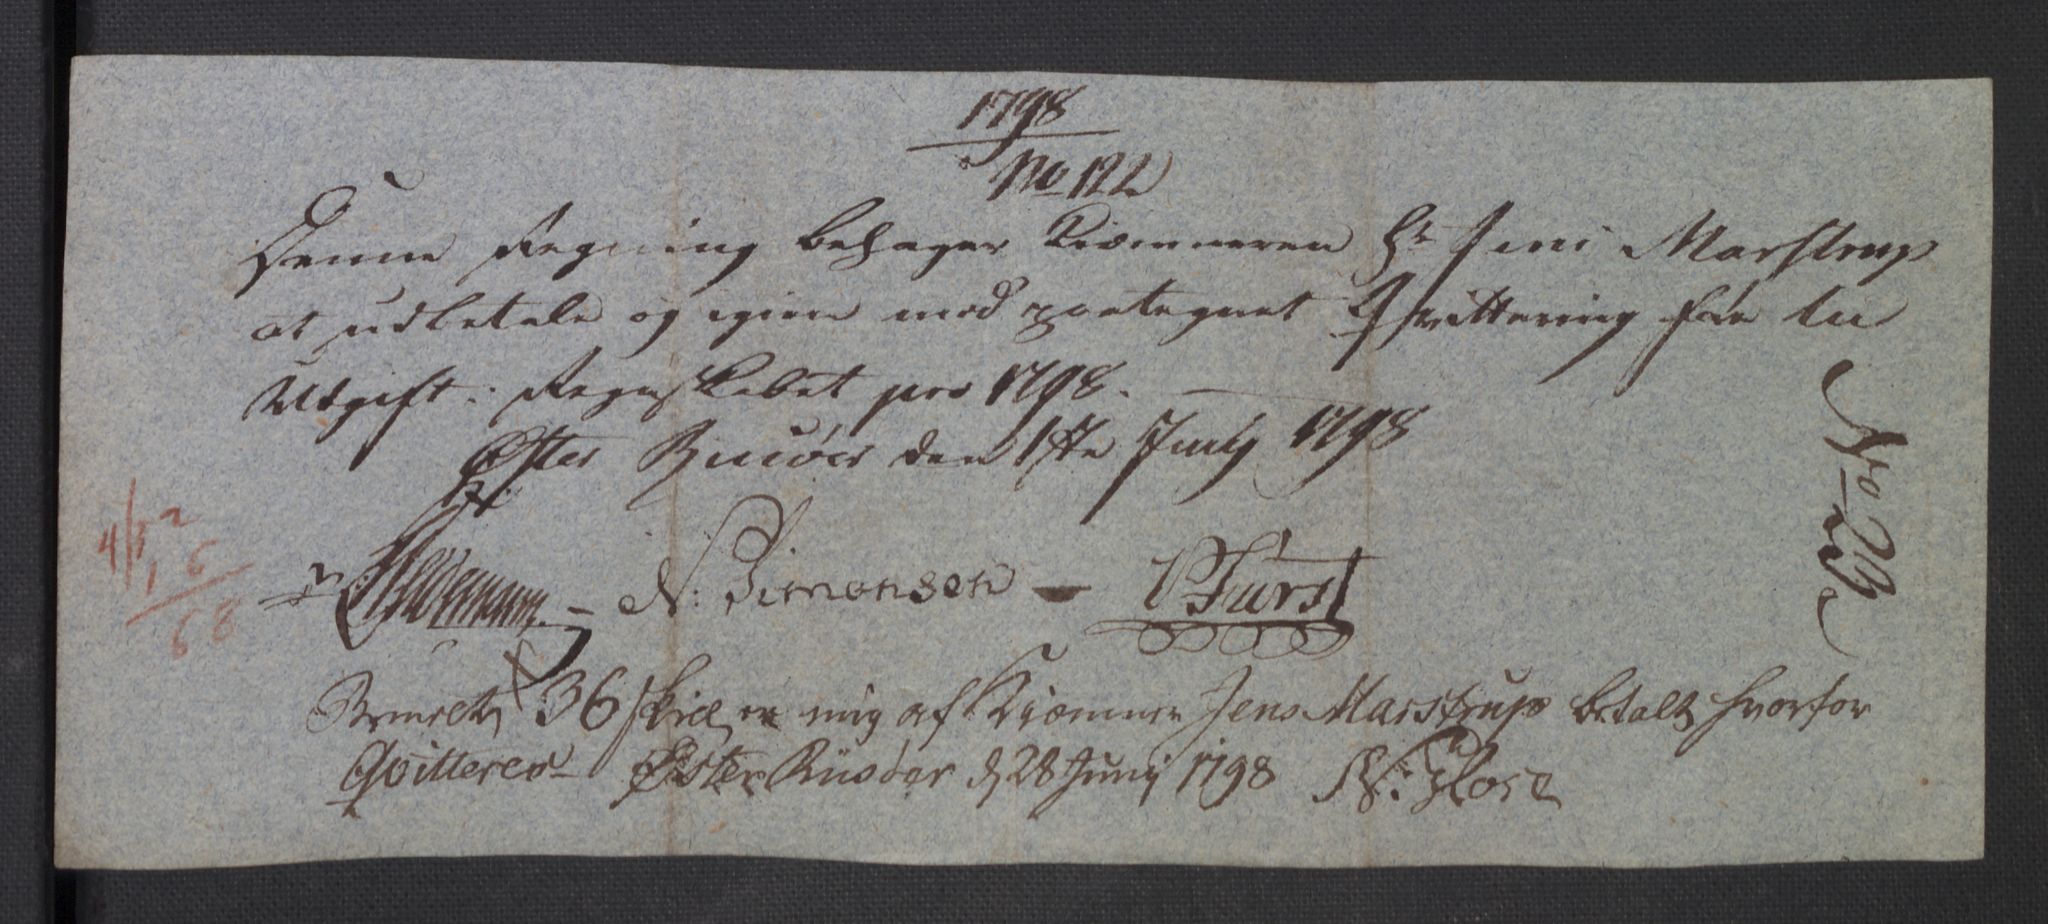 1798
No 122
Denne Regning behager Kiæmneren Hr Jens Marstrup
at udbetale og igien med paategnet Qvittering före til
Udgift i Regnskabet pro 1798.
Øster Riisöer den 1ste Juny 1798
Heldermann N: Simonsen PFürst
No 29
4/3 2
1 6
68
36 skill er mig af Kiæmner Jens Marstrup betalt hvorfor
Qvitteres Øster Riisöer d 28 Junij 1798